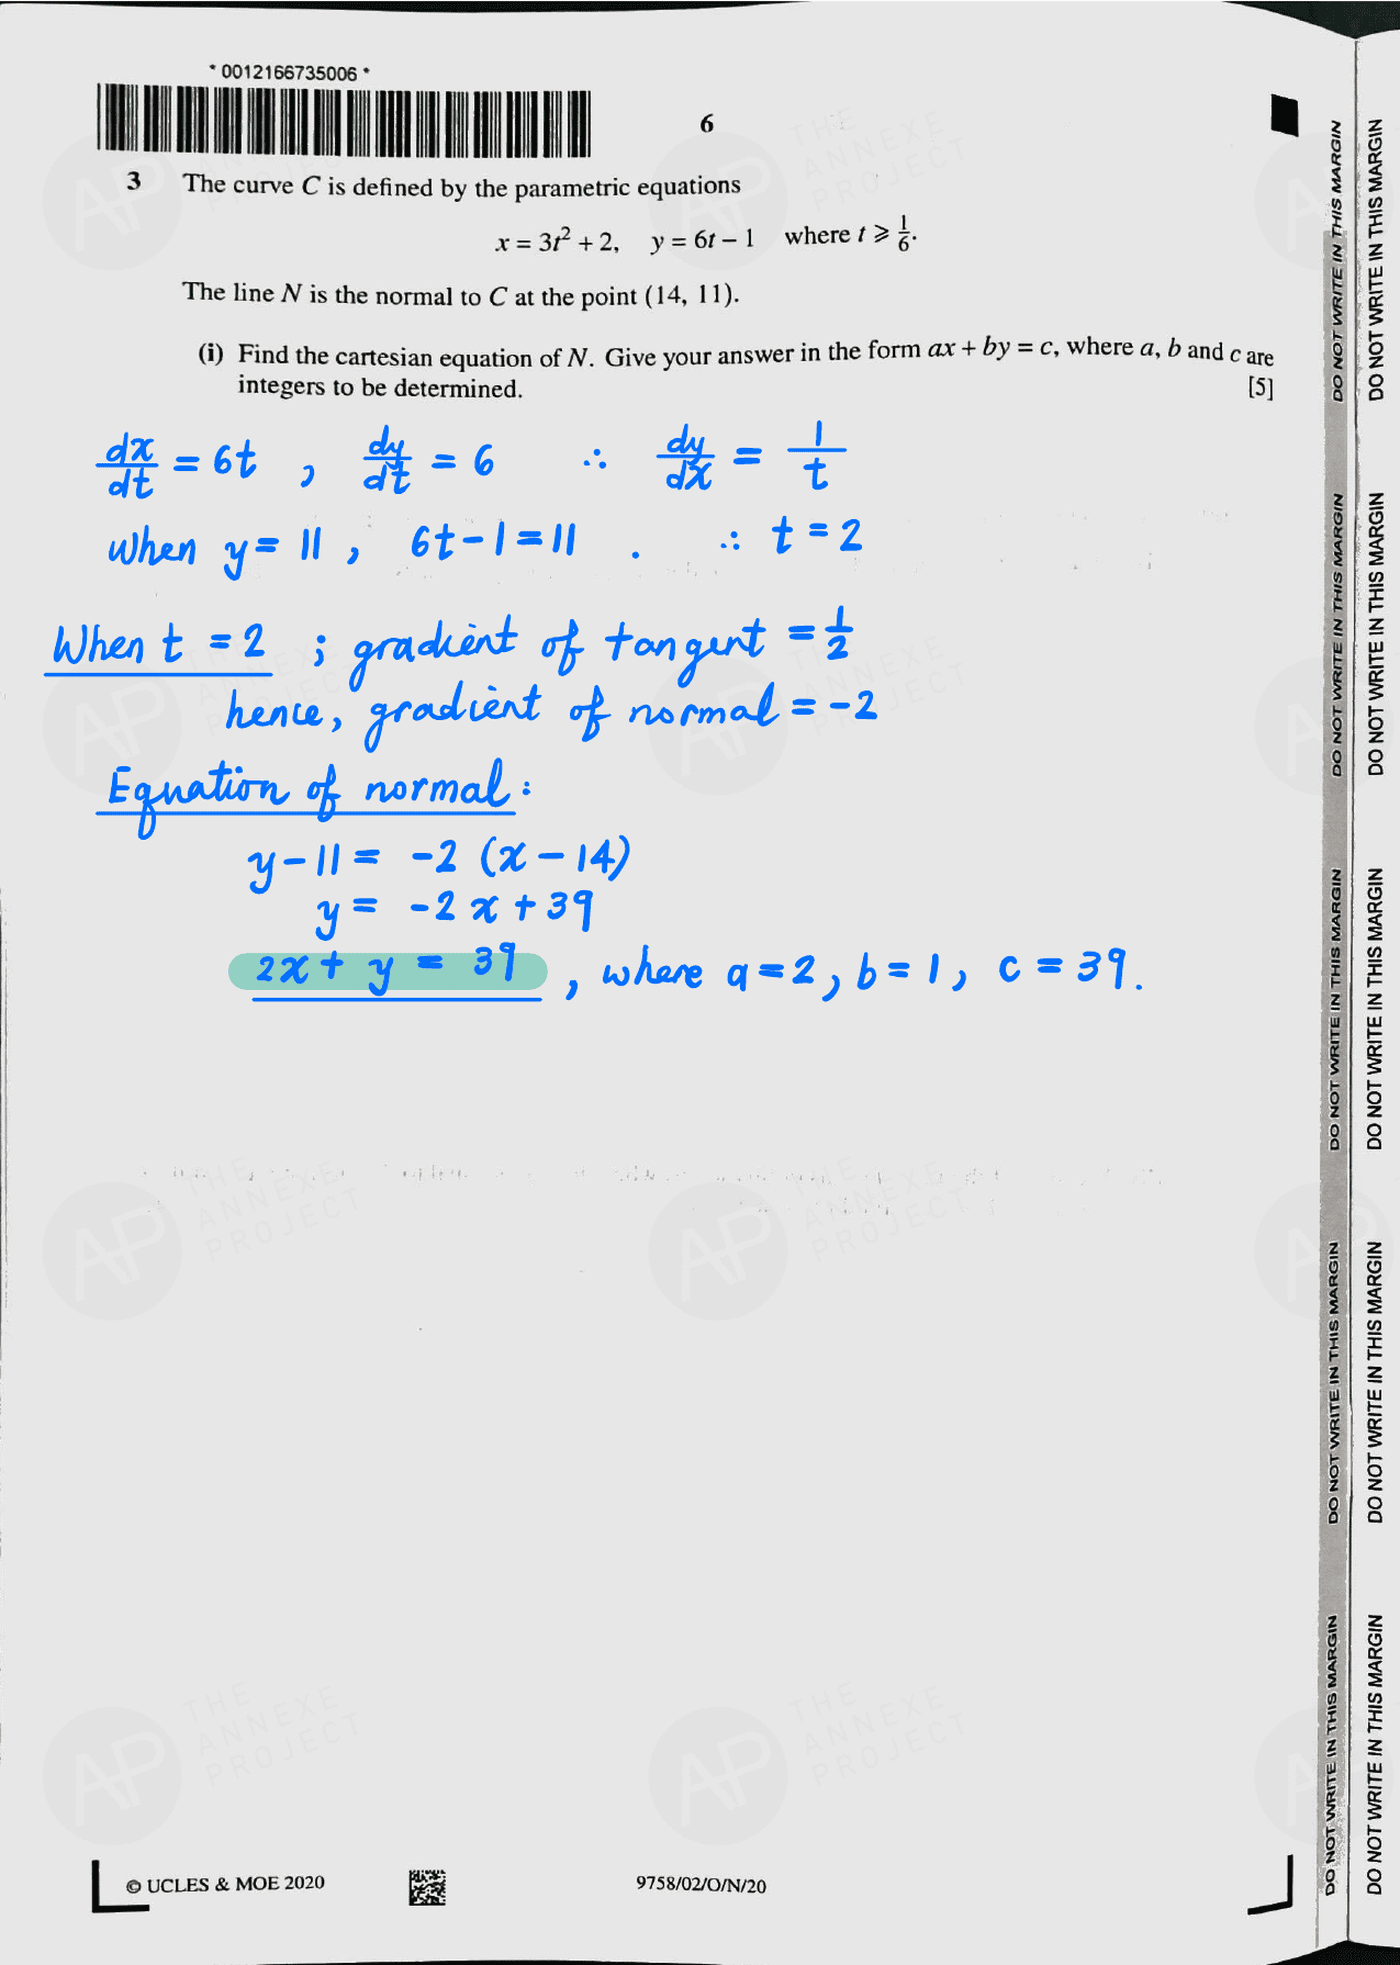 * 0012166735006 *
6
3 The curve C is defined by the parametric equations
x = 3t² + 2, y = 6t – 1 where t ⩾ 1/6.
The line N is the normal to C at the point (14, 11).
(i) Find the cartesian equation of N. Give your answer in the form ax + by = c, where a, b and c are
integers to be determined. [5]
dx/dt = 6t , dy/dt = 6 ∴ dy/dx = 1/t
When y = 11 , 6t – 1 = 11 . ∴ t = 2
When t = 2 ; gradient of tangent = 1/2
hence, gradient of normal = -2
Equation of normal :
y – 11 = -2 (x – 14)
y = -2x + 39
2x + y = 39 , where a = 2, b = 1, c = 39.
© UCLES & MOE 2020
9758/02/O/N/20
DO NOT WRITE IN THIS MARGIN
DO NOT WRITE IN THIS MARGIN
DO NOT WRITE IN THIS MARGIN
DO NOT WRITE IN THIS MARGIN
DO NOT WRITE IN THIS MARGIN
DO NOT WRITE IN THIS MARGIN
DO NOT WRITE IN THIS MARGIN
DO NOT WRITE IN THIS MARGIN
DO NOT WRITE IN THIS MARGIN
DO NOT WRITE IN THIS MARGIN
AP THE ANNEXE PROJECT